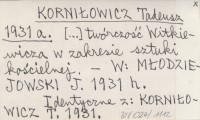 x
KORNIŁOWICZ Tadeusz
1931 a. [...] twórczość Witkie-
wicza w zakresie sztuki
kościelnej. - W: MŁODZIE-
JOWSKI J. 1931 h.
Identyczne z: KORNIŁO-
WICZ T. 1931.